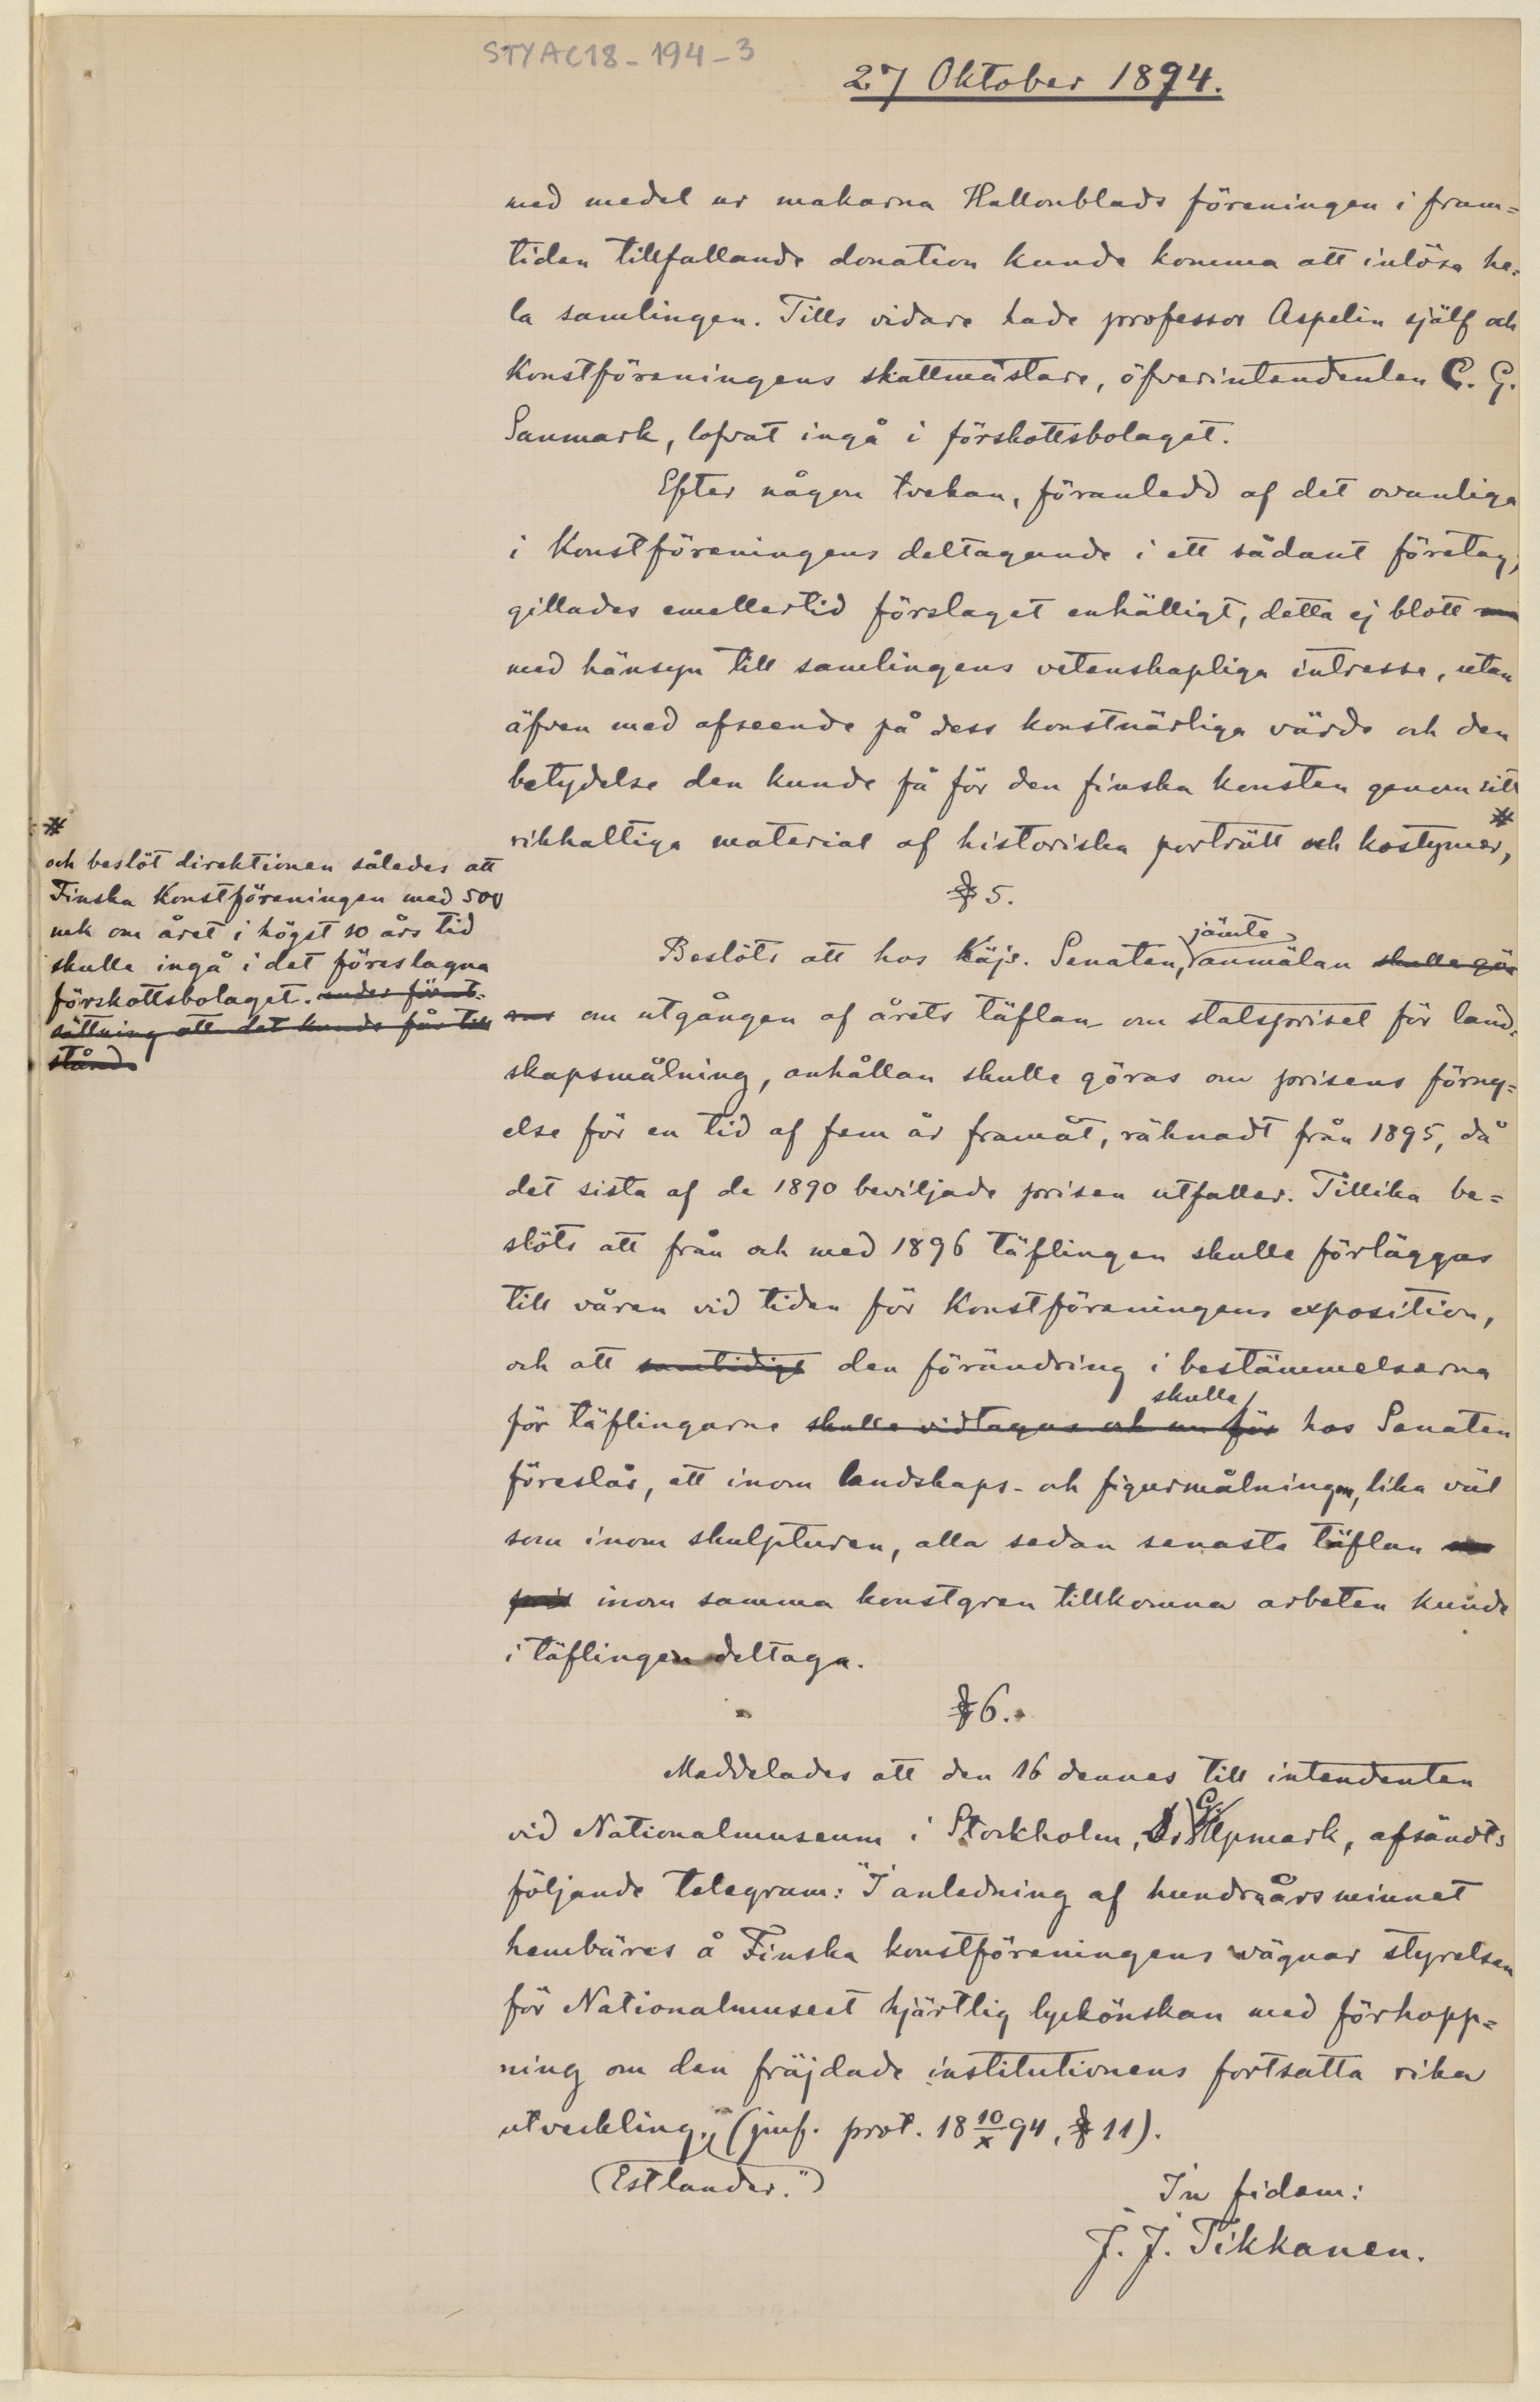 STYAC18-194-3
27 Oktober 1894.
med medel ur makarna Hallonblads föreningen i fram=
tiden tillfallande donation kunde komma att inlösa he=
la samlingen. Tills vidare hade professor Aspelin själf och
Konstföreningens skattmästare, öfverintendenten C. G.
Sanmark, lofvat ingå i förskottsbolaget.
Efter någon tvekan, föranledd af det ovanliga
i Konstföreningens deltagande i ett sådant företag,
gillades emellertid förslaget enhälligt, detta ej blott
med hänsyn till samlingens vetenskapliga intresse, utan
äfven med afseende på dess konstnärliga värde och den
betydelse den kunde få för den finska konsten genom sitt
rikhaltiga material af historiska porträtt och kostymer, *
*
och beslöt direktionen således att
Finska Konstföreningen med 500
mk om året i högst 10 års tid
skulle ingå i det föreslagna
förskottsbolaget. under förut-
sättning att det kunde fås till
stånd
§ 5.
jämte
Beslöts att hos Kejs. Senaten, anmälan skulle gö
ras om utgången af årets täflan om statspriset för land=
skapsmålning, anhållan skulle göras om prisens förny=
else för en tid af fem år framåt, räknadt från 1895, då
det sista af de 1890 beviljade prisen utfaller. Tillika be=
slöts att från och med 1896 täflingen skulle förläggas
till våren vid tiden för Konstföreningens exposition,
och att samtidigt den förändring i bestämmelserna
skulle
för täflingarne skulle vidtagas och hos Senaten
föreslås, att inom landskaps- och figurmålningen, lika väl
som inom skulpturen, alla sedan senaste täflan
pris inom samma konstgren tillkomna arbeten kunde
i täflingen deltaga.
§ 6.
Meddelades att den 16 dennes till intendenten
G.
vid Nationalmuseum i Stockholm, Dr Upmark, afsändts
följande telegram: "I anledning af hundraårsminnet
hembäres å Finska konstföreningens vägnar styrelsen
för Nationalmuseet hjärtlig lyckönskan med förhopp=
ning om den fräjdade institutionens fortsatta rika
utveckling." (jmf. prot. 18 10/X 94, § 11).
(Estlander.")
In fidem:
J. J. Tikkanen.